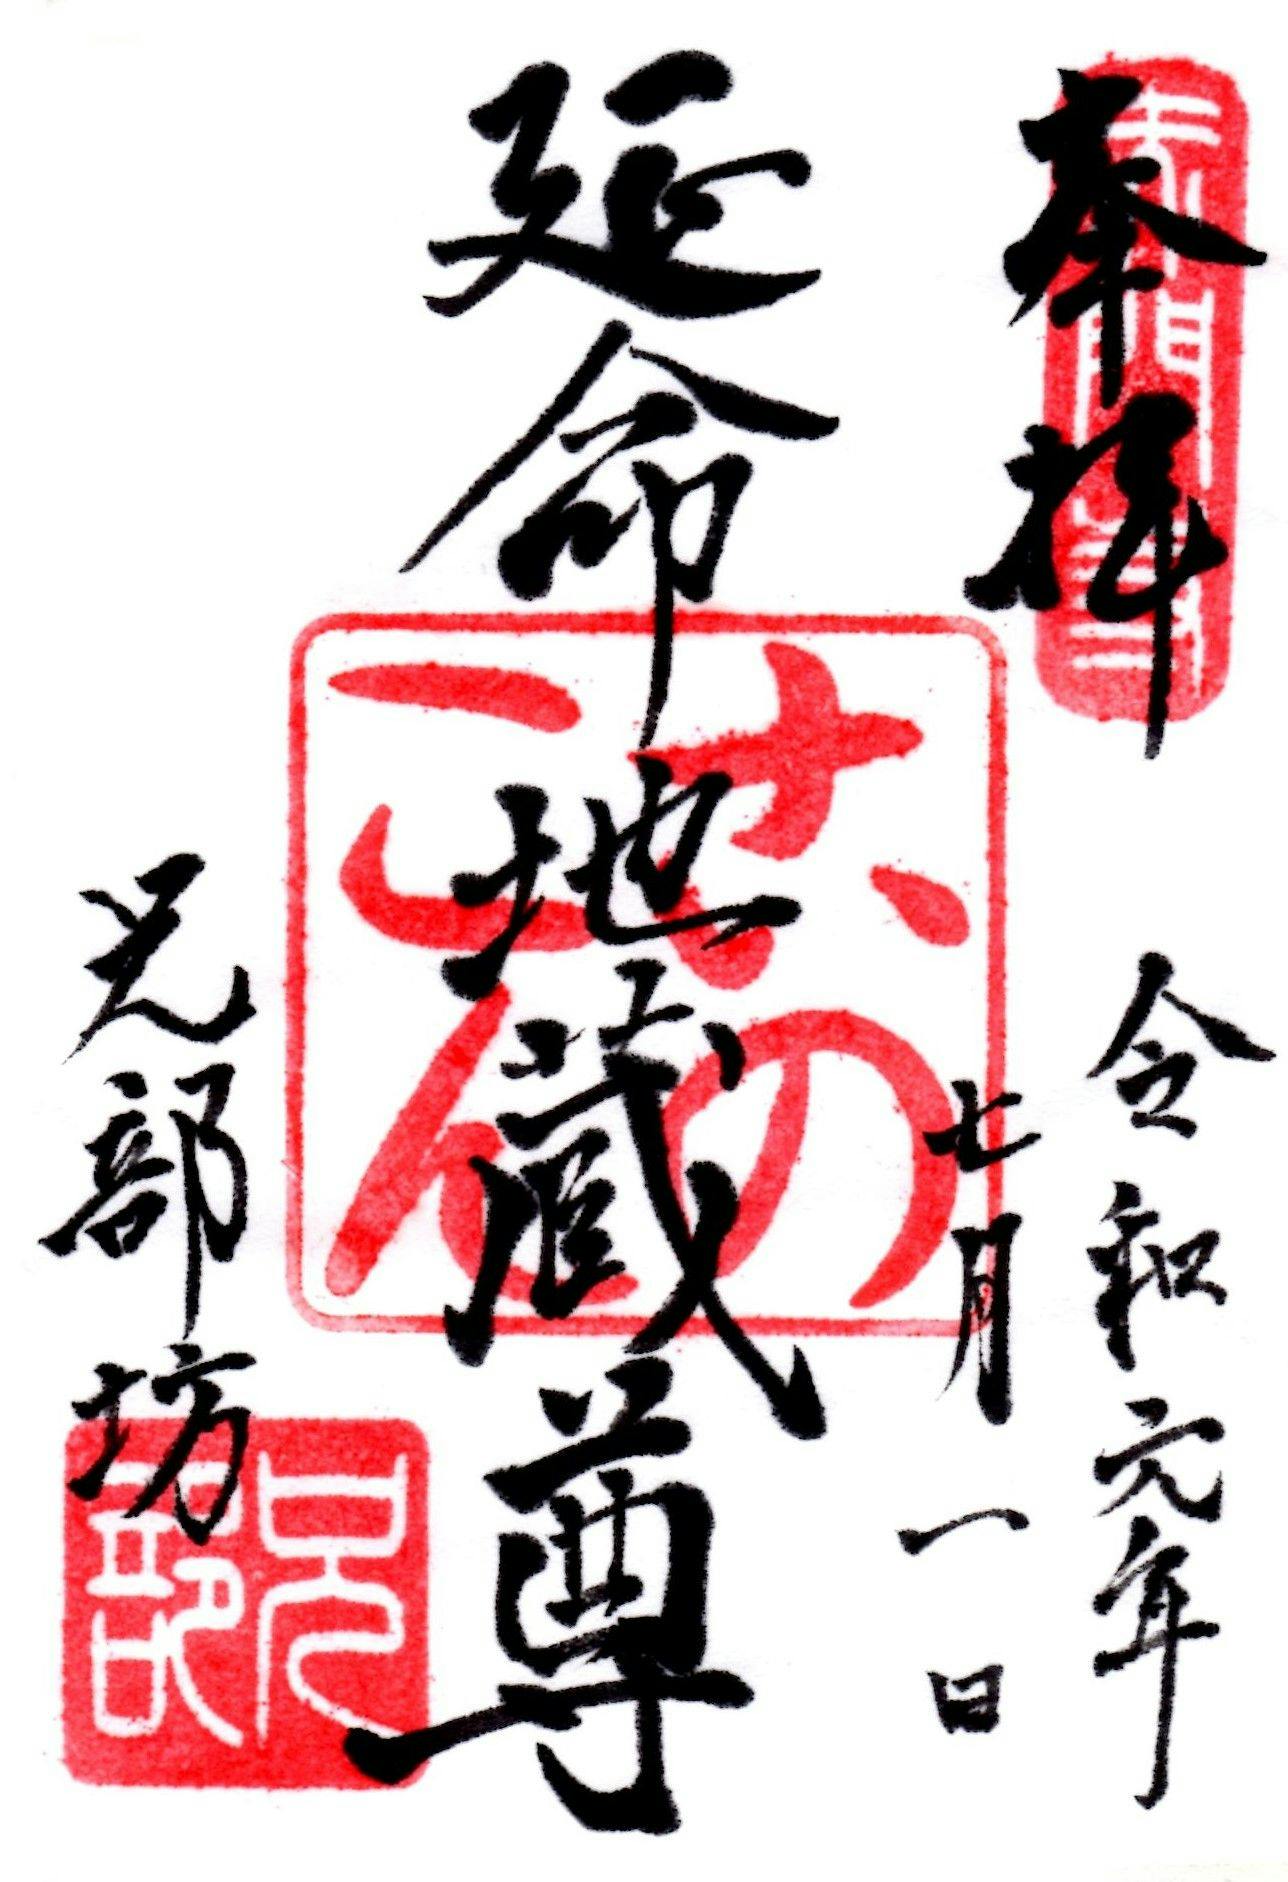 奉拝
令和元年
七月一日
延命地蔵尊
兄部坊
兄部